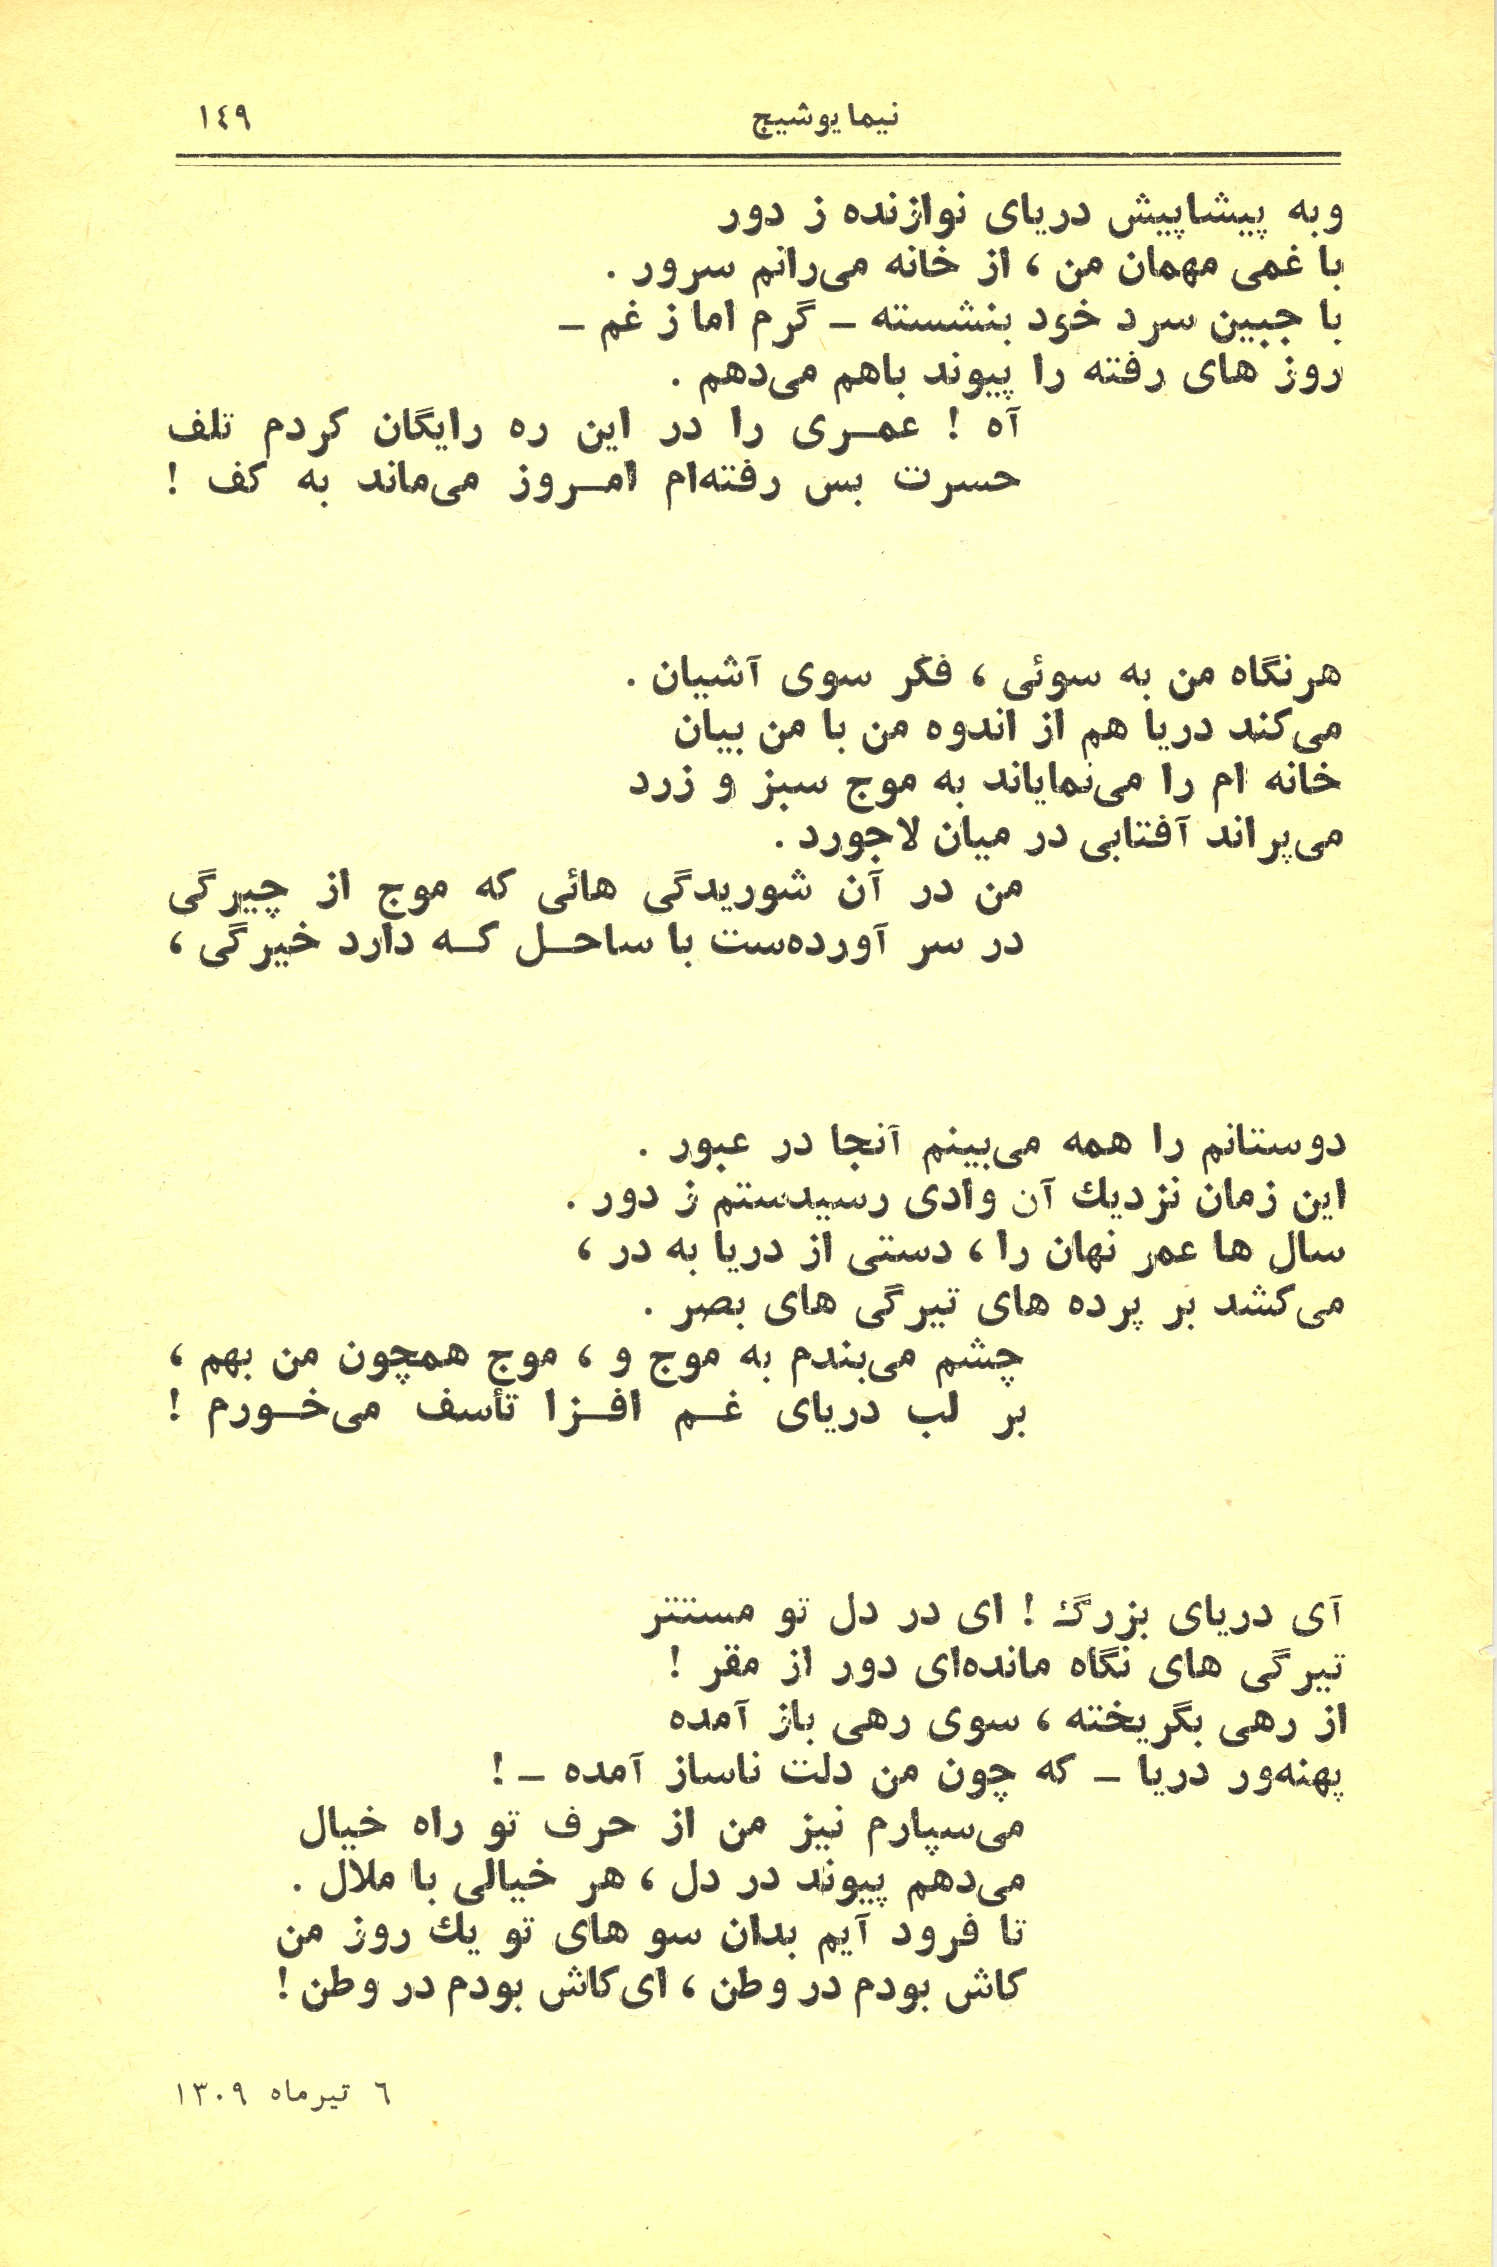 نیما یوشیج ١٤٩
وبه پیشاپیش دریای نوازنده ز دور
با غمی مهمان من ، از خانه می‌رانم سرور .
با جبین سرد خود بنشسته ــ گرم اما ز غم ــ
روز های رفته را پیوند باهم می‌دهم .
آه ! عمـری را در این ره رایگان کردم تلف
حسرت بس رفته‌ام امـروز می‌ماند به کف !
هر نگاه من به سوئی ، فکر سوی آشیان .
می‌کند دریا هم از اندوه من با من بیان
خانه ام را می‌نمایاند به موج سبز و زرد
می‌پراند آفتابی در میان لاجورد .
من در آن شوریدگی هائی که موج از چیرگی
در سر آورده‌ست با ساحـل کـه دارد خیرگی ،
دوستانم را همه می‌بینم آنجا در عبور .
این زمان نزدیك آن وادی رسیدستم ز دور .
سال ها عمر نهان را ، دستی از دریا به در ،
می‌کشد بر پرده های تیرگی های بصر .
چشم می‌بندم به موج و ، موج همچون من بهم ،
بر لب دریای غـم افـزا تأسف می‌خـورم !
آی دریای بزرگ ! ای در دل تو مستتر
تیرگی های نگاه مانده‌ای دور از مقر !
از رهی بگریخته ، سوی رهی باز آمده
پهنه‌ور دریا ــ که چون من دلت ناساز آمده ــ !
می‌سپارم نیز من از حرف تو راه خیال
می‌دهم پیوند در دل ، هر خیالی با ملال .
تا فرود آیم بدان سو های تو یك روز من
کاش بودم در وطن ، ای‌کاش بودم در وطن !
٦ تیرماه ١٣٠٩